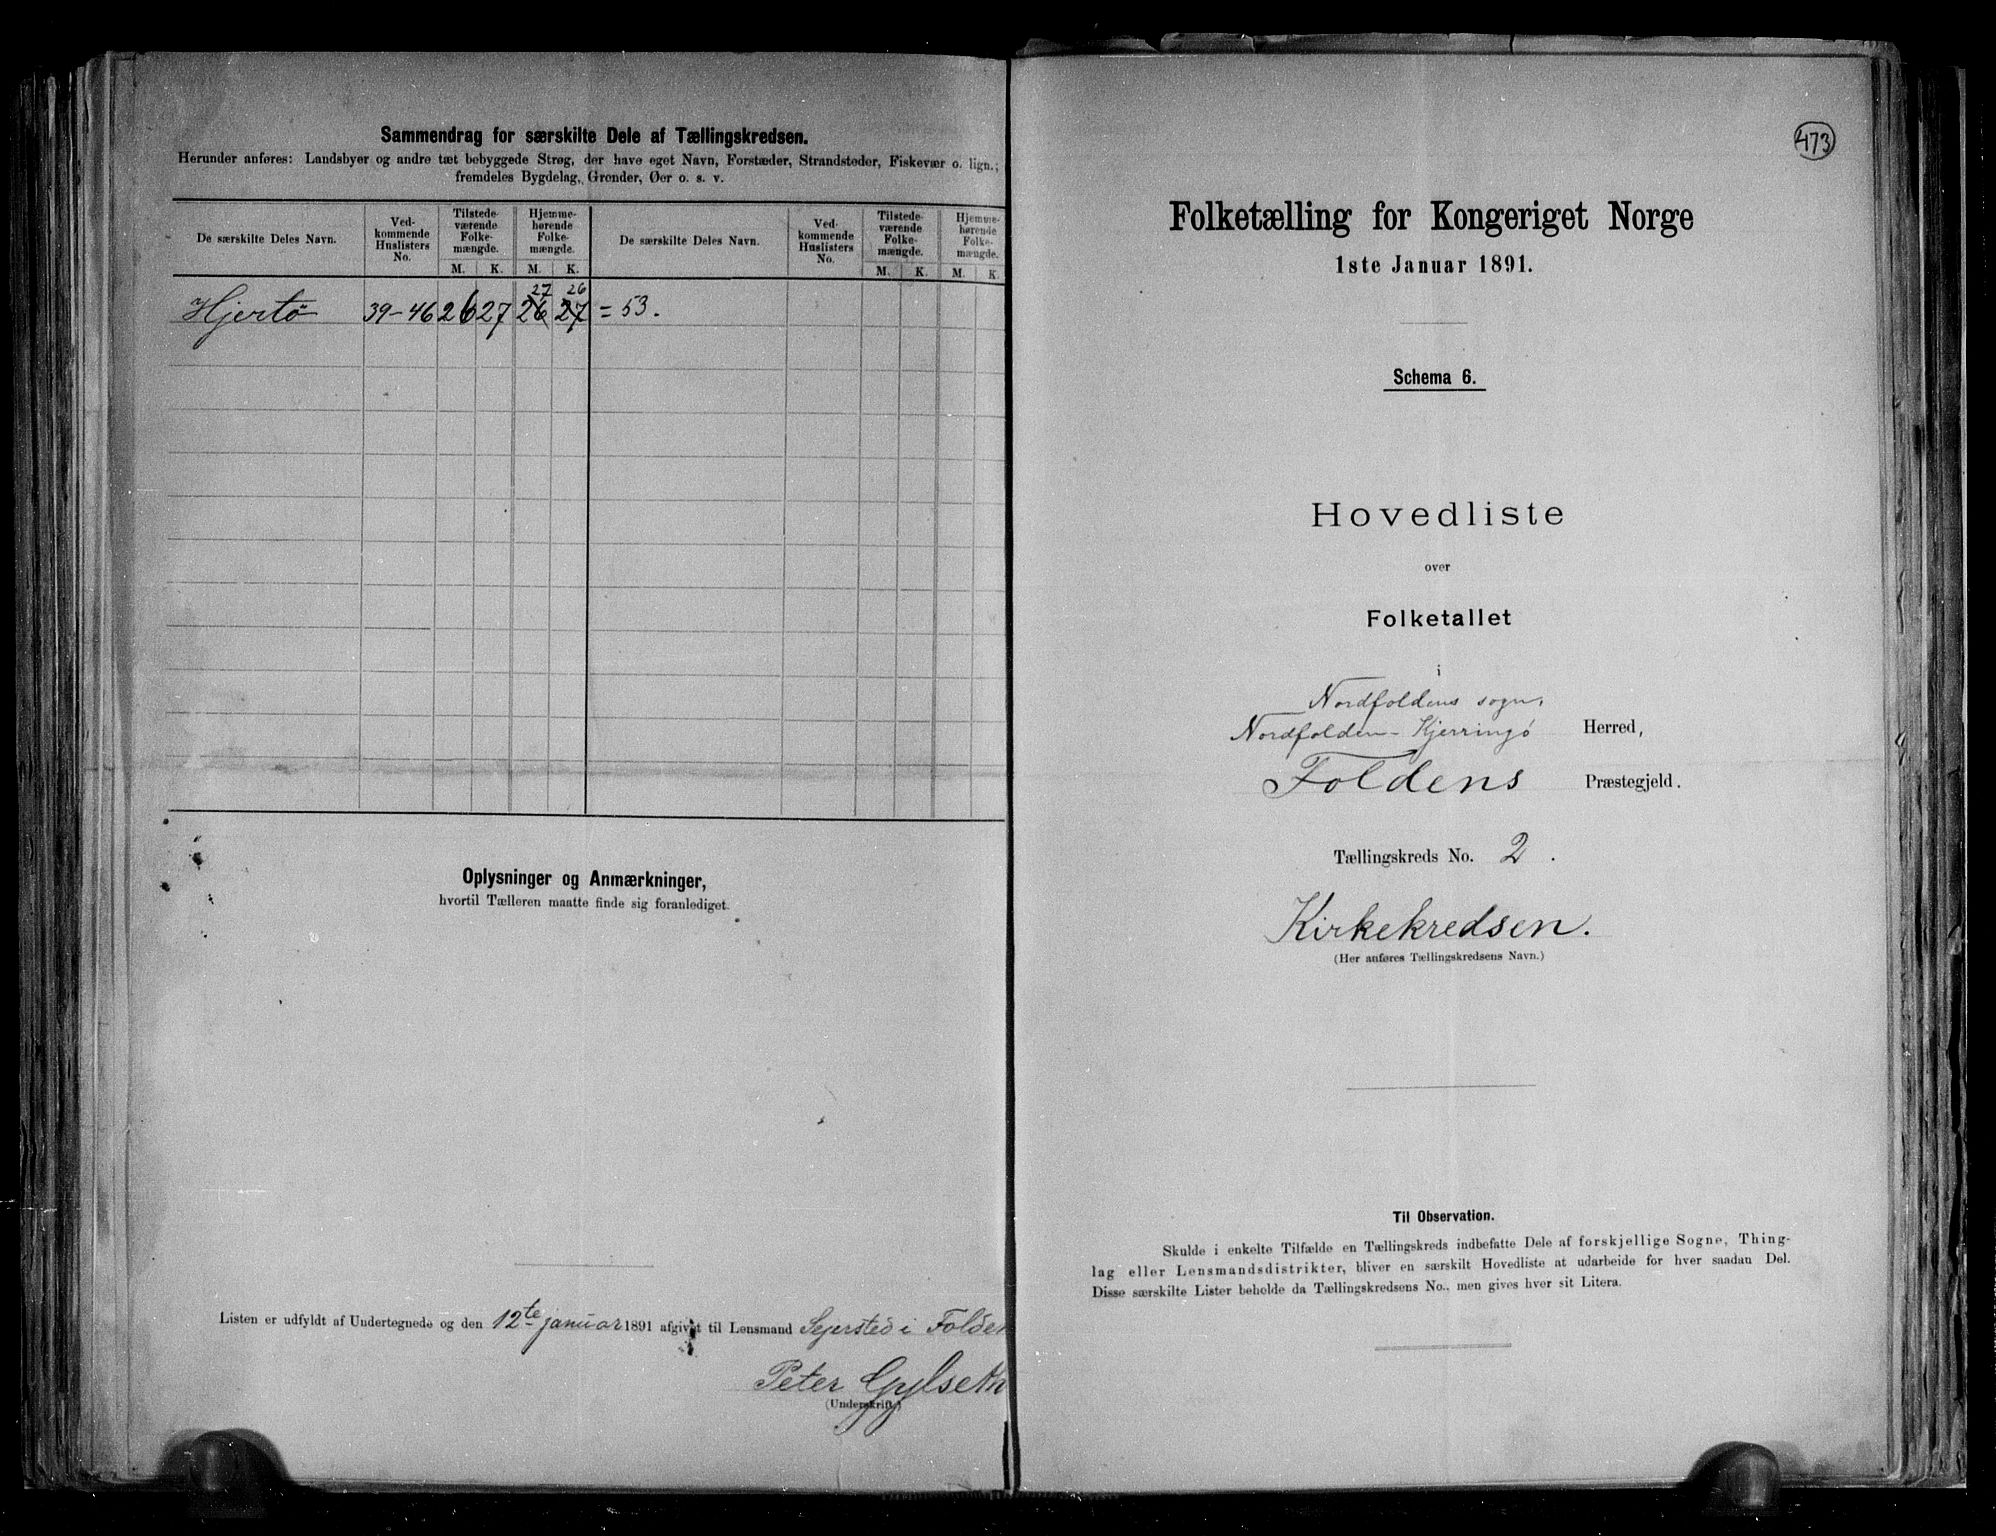 Sammendrag for særskilte Dele af Tællingskredsen.
Herunder anføres: Landsbyer og andre tæt bebyggede Strøg, der have eget Navn, Forstæder, Strandsteder, Fiskevær o. lign.;
fremdeles Bygdelag, Grender, Øer o. s. v.
De særskilte Deles Navn.
Ved-
kommende
Huslisters
No.
Tilstede-
værende
Folke-
mængde.
Hjemme-
hørende
Folke-
mængde.
De særskilte Deles Navn.
Ved-
kommende
Huslisters
No.
Tilstede-
værende
Folke-
mængde.
Hjemme-
hørende
Folke-
mængde.
M. K. M. K. M. K. M. K.
27 26
Hjertö 39-46 26 27 26 27 = 53.
Oplysninger og Anmærkninger,
hvortil Tælleren maatte finde sig foranlediget.
Listen er udfyldt af Undertegnede og den 12te januar 1891 afgivet til Lensmand Sejersted i Folden
Peter Gylseth
(Underskrift.)
473
Folketælling for Kongeriget Norge
1ste Januar 1891.
Schema 6.
Hovedliste
over
Folketallet
i
Nordfoldens sogn,
Nordfolden-Kjerringö Herred,
Foldens Præstegjeld.
Tællingskreds No. 2.
Kirkekredsen.
(Her anføres Tællingskredsens Navn.)
Til Observation.
Skulde i enkelte Tilfælde en Tællingskreds indbefatte Dele af forskjellige Sogne, Thing-
lag eller Lensmandsdistrikter, bliver en særskilt Hovedliste at udarbeide for hver saadan Del.
Disse særskilte Lister beholde da Tællingskredsens No., men gives hver sit Litera.